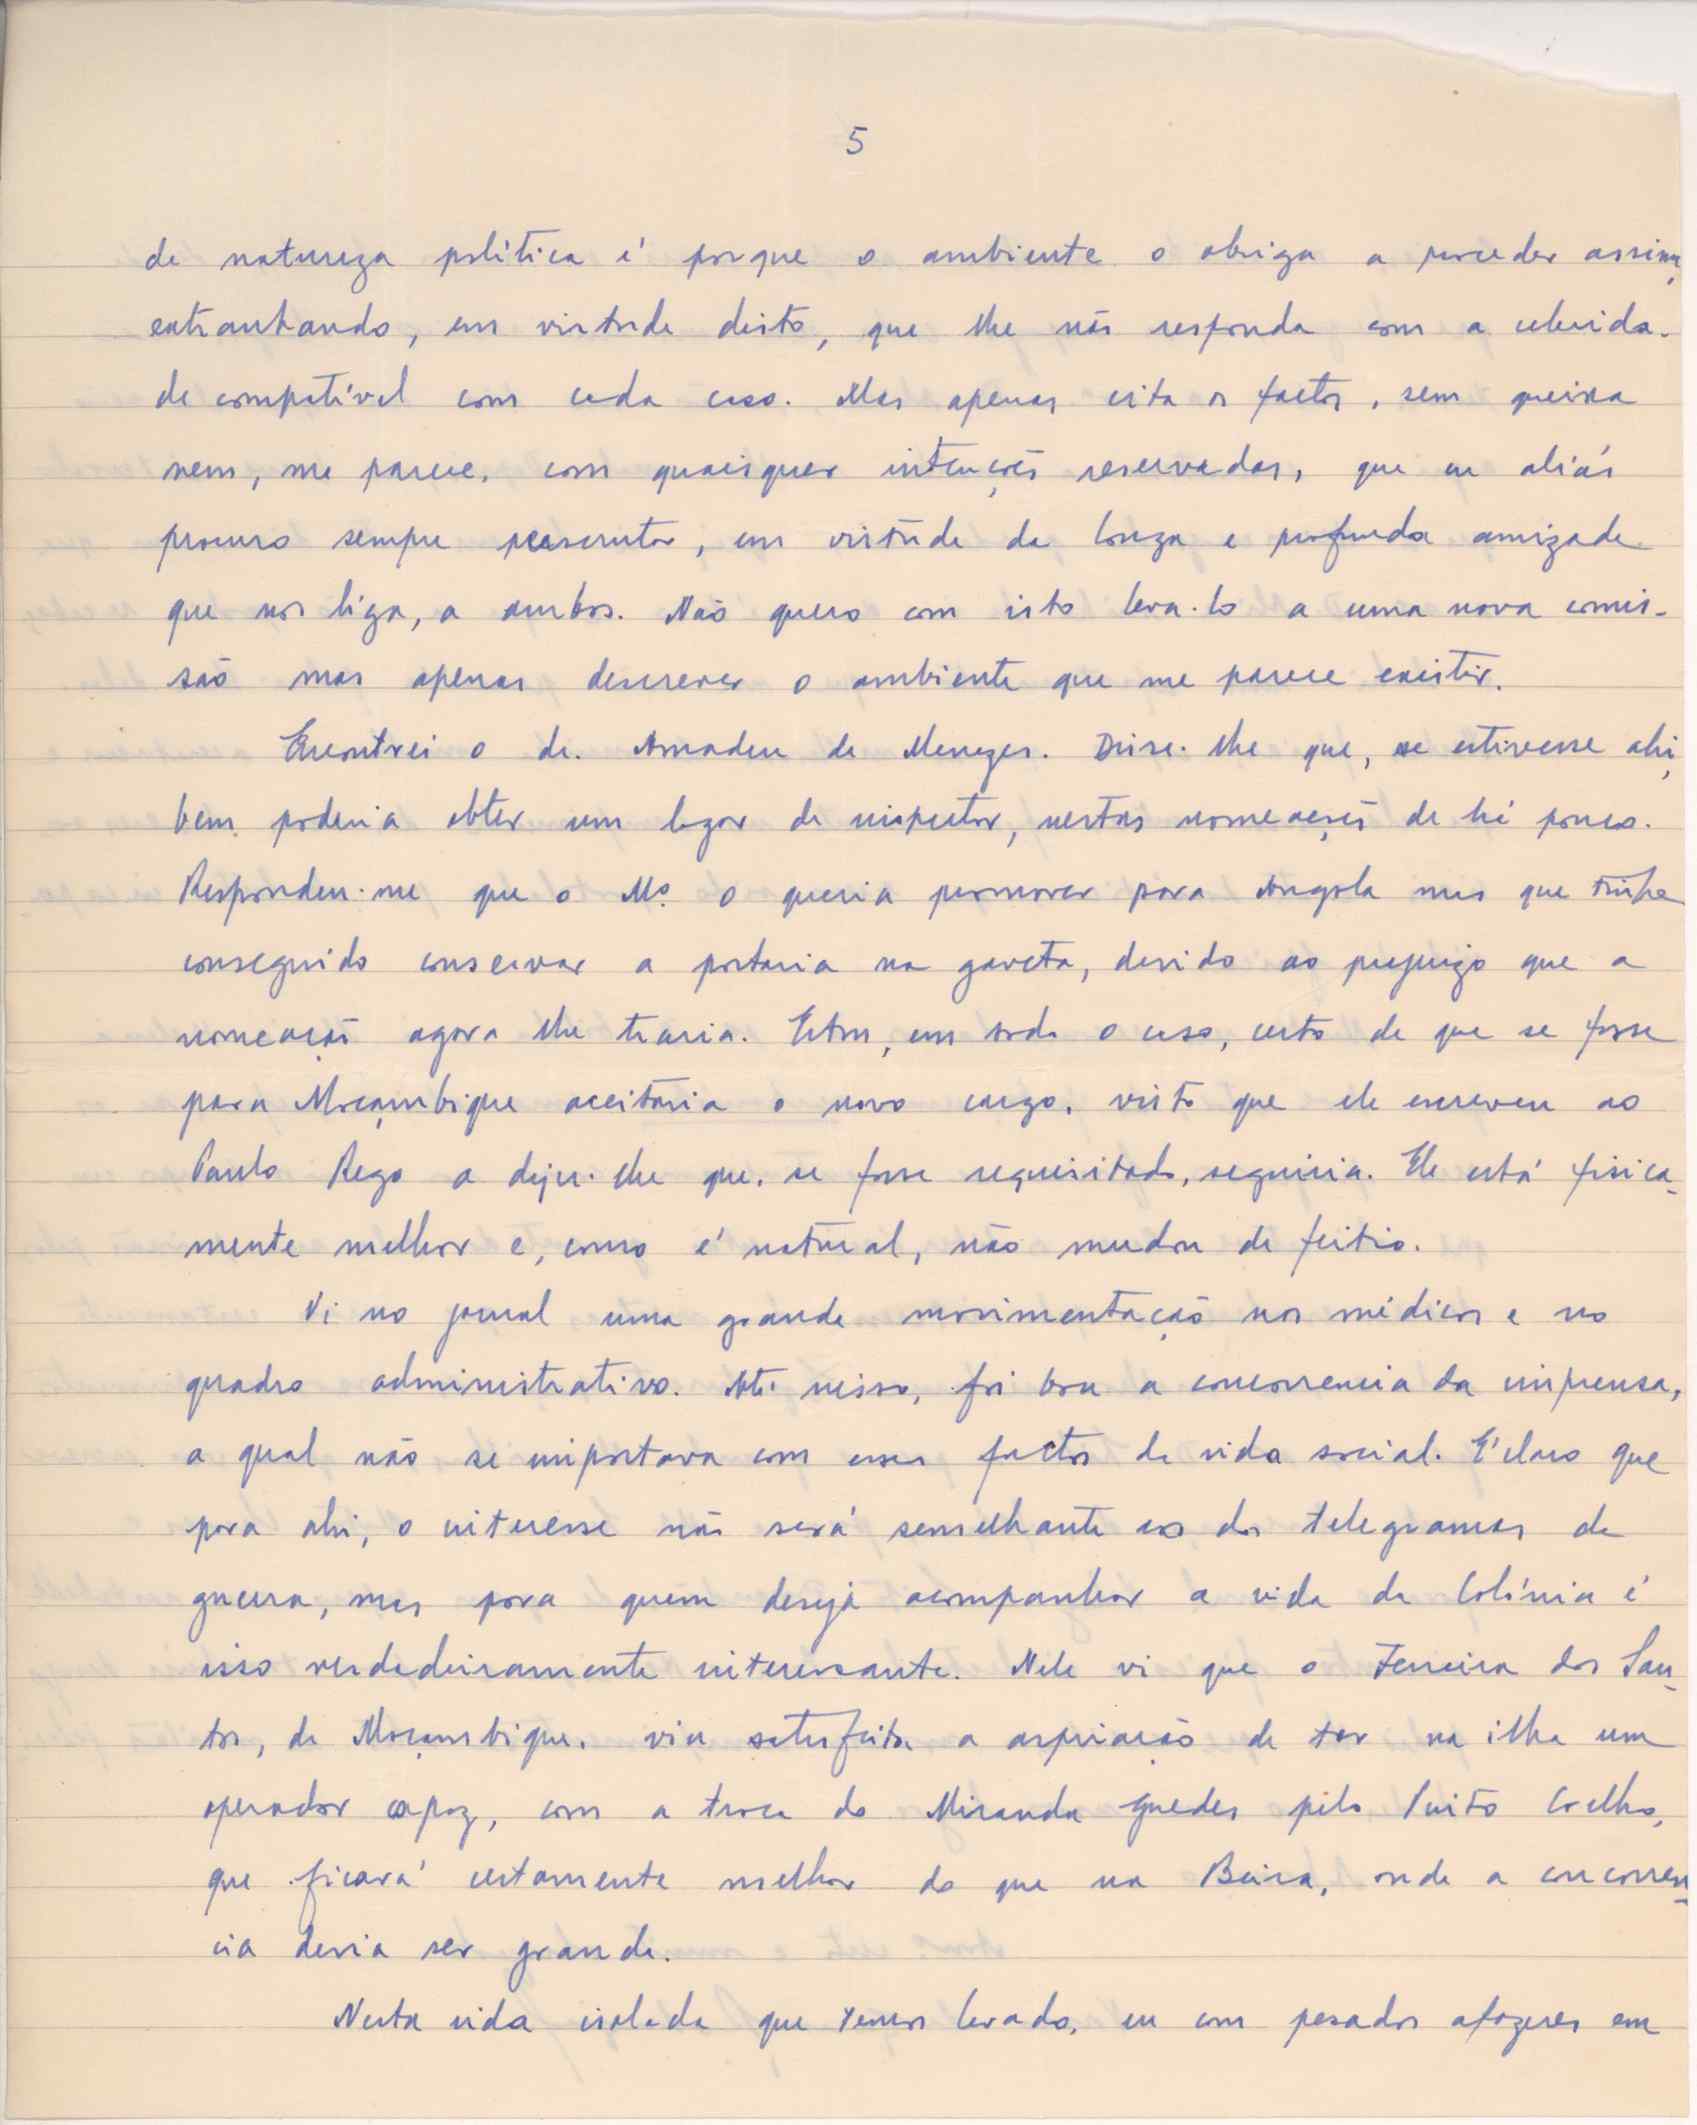 5
de natureza política é porque o ambiente o obriga a proceder assim,
extranhando, em virtude disto, que lhe não responda com a celerida-
de compatível com cada caso. Mas apenas cita os factos, sem queixa
nem, me parece, com quaisquer intenções reservadas, que eu aliás
procuro sempre perscrutar, em virtude da longa e profunda amizade
que nos liga, a ambos. Não quero com isto leva-lo a uma nova comis-
são mas apenas descrever o ambiente que me parece existir.
Encontrei o dr. Amadeu de Menezes. Disse-lhe que, se estivesse ahi,
bem poderia obter um logar de inspector, nestas nomeações de há pouco.
Respondeu-me que o Mº. o queria promover para Angola mas que tinha
conseguido conservar a portaria na gaveta, devido ao prejuizo que a
nomeação agora lhe traria. Estou, em todo o caso, certo de que se fosse
para Moçambique aceitaria o novo cargo, visto que ele escreveu ao
Paulo Rego a dizer-lhe que, se fosse requisitado, seguiria. Ele está fisica-
mente melhor e, como é natural, não mudou de feitio.
Vi no jornal uma grande movimentação nos médicos e no
quadro administrativo. Até nisso, foi boa a concorrencia da imprensa,
a qual não se importava com esses factos da vida social. E' claro que
para ahi, o interesse não será semelhante ao dos telegramas de
guerra, mas para quem deseja acompanhar a vida da Colónia é
isso verdadeiramente interessante. Nele vi que o Ferreira dos San-
tos, de Moçambique, viu satisfeita a aspiração de ter na ilha um
operador capaz, com a troca do Miranda Guedes pelo Pinto Coelho,
que ficará certamente melhor do que na Beira, onde a concorren-
cia devia ser grande.
Nesta vida isolada que temos levado, eu com pesados afazeres em